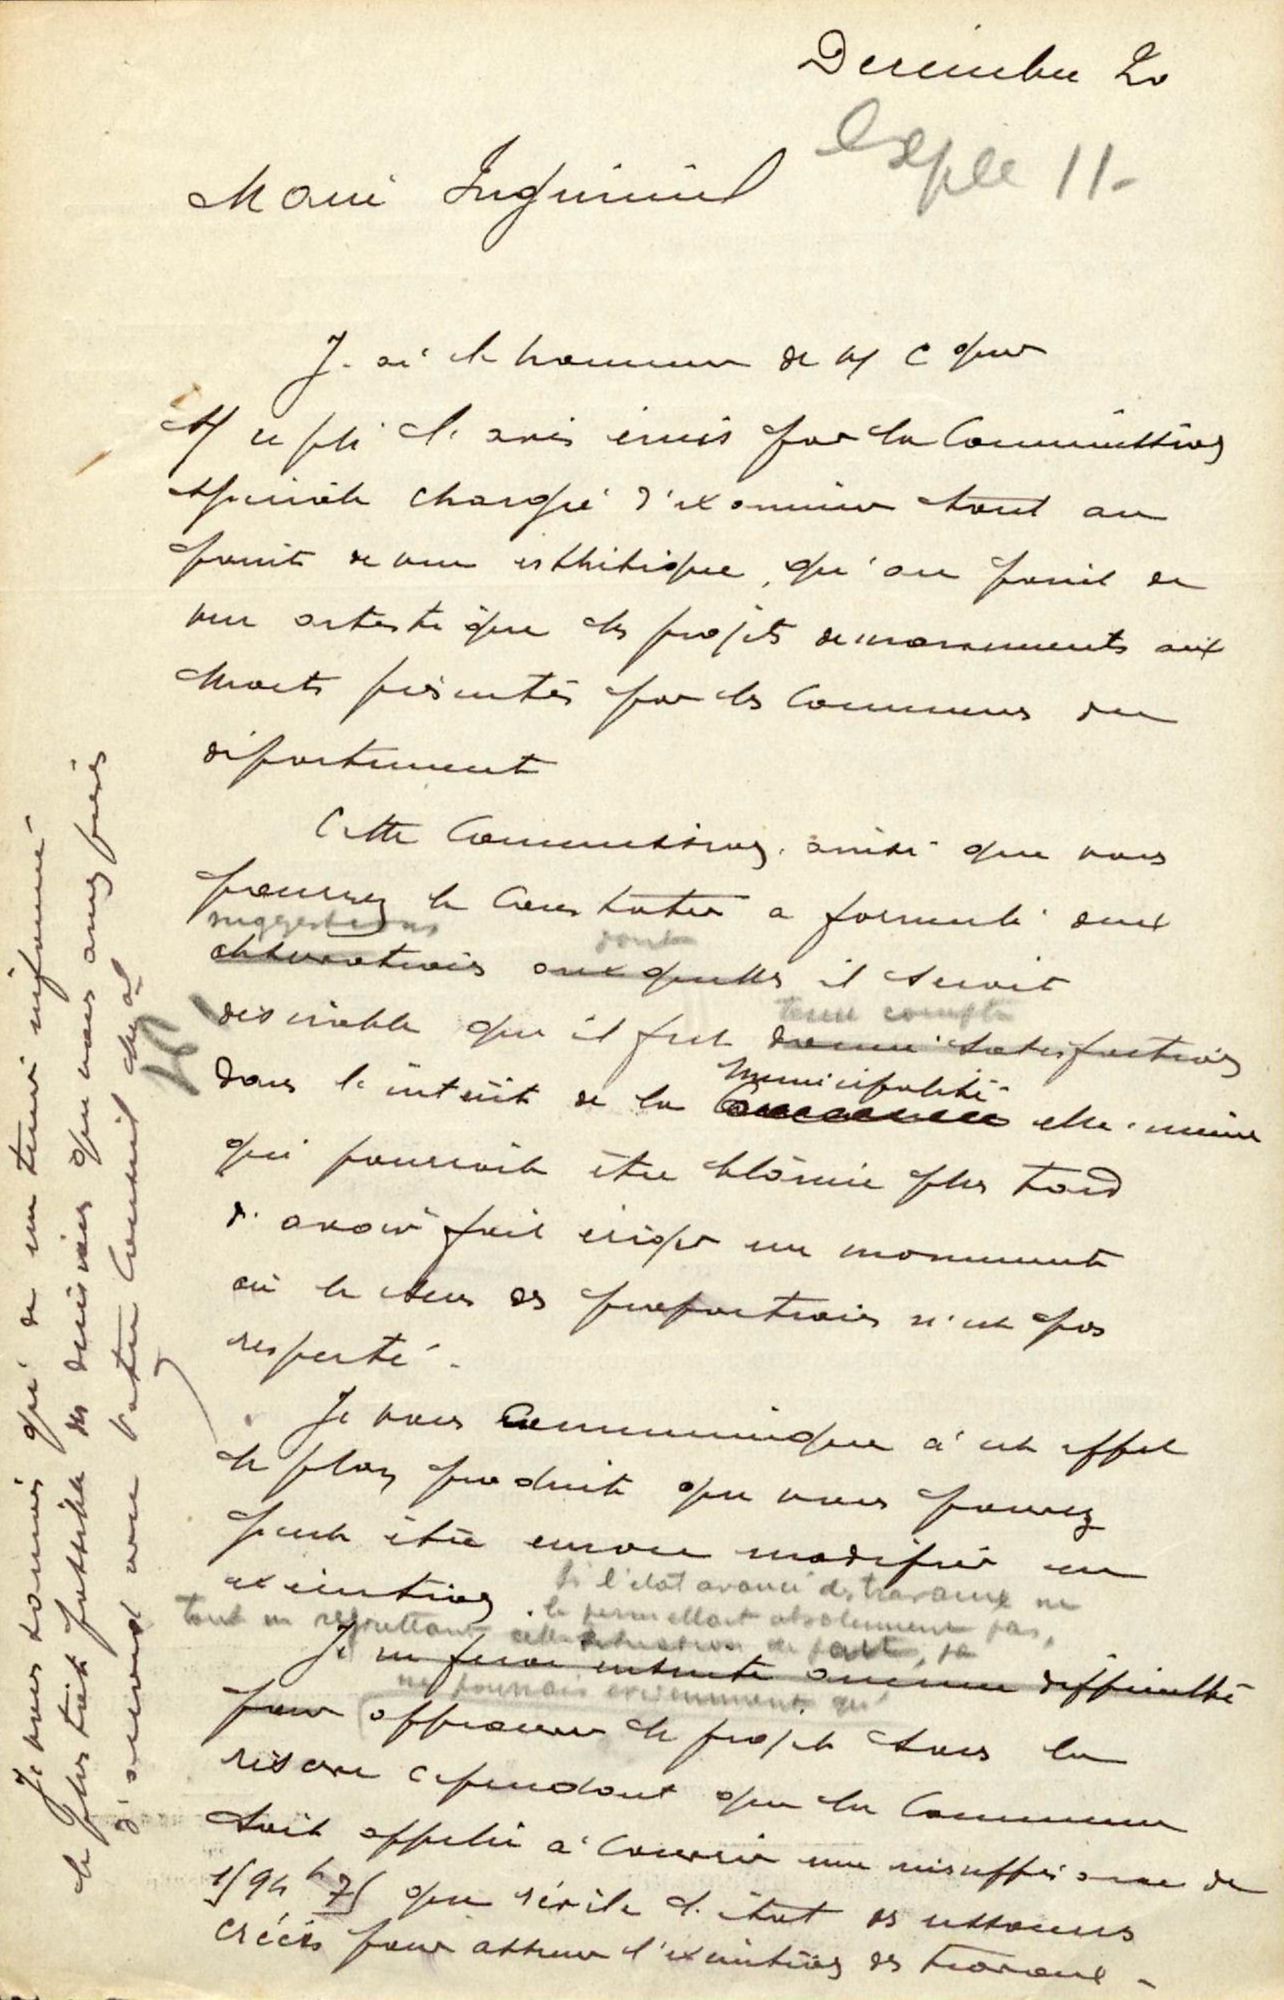 Decembre 20
Expte 11-
Maire Inguiniel
J'ai l'honneur de v/ C que
s/ ce pli l'avis émis par la Commission
spéciale chargée d'examiner tant au
point de vue esthétique, qu'au point de
vue artistique les projets de monuments aux
morts présentés par les Communes du
département
Cette Commission, ainsi que vous
pourrez le constater a formulé deux
suggestions dont
observations auxquelles il serait
tenu compte
désirable qu'il fut donné satisfaction
Municipalité
dans l'intérêt de la Commune elle-même
qui pourrait être blâmée plus tard
d'avoir fait ériger un monument
où le sens des proportions n'est pas
respecté.
Je vous communique à cet effet
le plan produit que vous pourrez
peut être encore modifier en
exécution.
Si l'état avancé des travaux ne
le permettait absolument pas,
tout en regrettant cette situation de fait, je
Je ne ferai ensuite aucune difficulté
ne pourrais évidemment qu'
pour approuver le projet sous la
réserve cependant que la Commune
soit appelée à couvrir une insuffisance de
1594 f 75 que révèle l'état des ressources
créées pour assurer l'exécution des travaux -
Je vous serais qui de me tenir informé
le plus tôt possible des décisions que vous aurez prises
d'accord avec votre Conseil mal